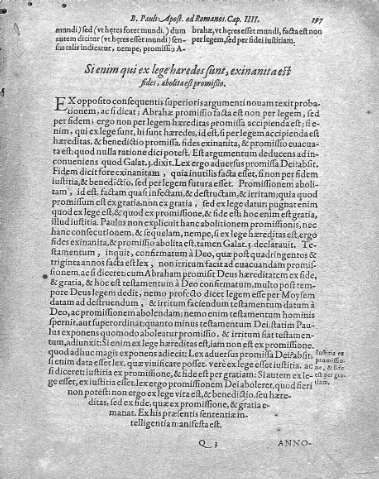 B. Pauli Apost. ad Romanos. Cap. IIII. 197
mundi) sed (vt heres foret mundi) dum
autem dicitur (vt heres esset mundi) sen-
sus talis indicatur, nempe, promissio A-
brahæ, vt heres esset mundi, facta est non
per legem, sed per fidei iustitiam.
Si enim qui ex lege hæredes sunt, exinanita est
fides, abolita est promissio.
EX opposito consequentis superioris argumenti nouam texit proba-
tionem, ac si dicat; Abrahæ promissio facta est non per legem, sed
per fidem: ergo non per legem hæreditas promissa accipienda est: si e-
nim, qui ex lege sunt, hi sunt hæredes, id est, si per legem accipienda est
hæreditas, & benedictio promissa, fides exinanita, & promissio euacua-
ta est: quod nulla ratione dici potest. Est argumentum deducens ad in-
conueniens quod Galat. 3. dixit. Lex ergo aduersus promissa Dei? absit.
Fidem dicit fore exinanitam, quia inutilis facta esset, si non per fidem
iustitia, & benedictio, sed per legem futura esset. Promissionem aboli-
tam, id est, factam quasi infectam, & destructam, & irritam, quia quod
promissum est ex gratia, non ex gratia, sed ex lege datur: pugnat enim
quod ex lege est, & quod ex promissione, & fide est: hoc enim est gratia,
illud iustitia. Paulus non explicuit hanc abolitionem promissionis, nec
hanc consecutionem, & sequelam, nempe, si ex lege hæreditas est, ergo
fides exinanita, & promissio abolita est. tamen Galat. 3. declarauit. Te-
stamentum, inquit, confirmatum à Deo, quæ post quadringentos &
triginta annos facta est lex, non irritum facit ad euacuandam promissi-
onem. ac si diceret: cum Abraham promisit Deus hæreditatem ex fide,
& gratia, & hoc est testamentum à Deo confirmatum, multo post tem-
pore Deus legem dedit, nemo profecto dicet legem esse per Moysem
datam ad destruendum, & irritum faciendum testamentum datum à
Deo, ac promissionem abolendam; nemo enim testamentum hominis
spernit, aut superordinat: quanto minus testamentum Dei. statim Pau-
lus exponens quomodo aboletur promissio, & irritum fiat testamen-
tum, adiunxit: Si enim ex lege hæreditas est, iam non est ex promissione.
quod adhuc magis exponens adiecit: Lex aduersus promissa Dei? absit.
si enim data esset lex, quæ viuificare posset, verè ex lege esset iustitia. ac
si diceret: iustitia ex promissione, & fide est per gratiam: Si autem ex le-
ge esset, ex iustitia esset. Lex ergo promissionem Dei aboleret, quod fieri
non potest: non ergo ex lege vita est, & benedictio, seu hære-
ditas, sed ex fide, quæ ex promissione, & gratia e-
manat. Ex his præsentis sententiæ in-
telligentia manifesta est.
Iustitia ex
promissio-
ne, & fide
est per gra-
tiam.
Q 3 ANNO-